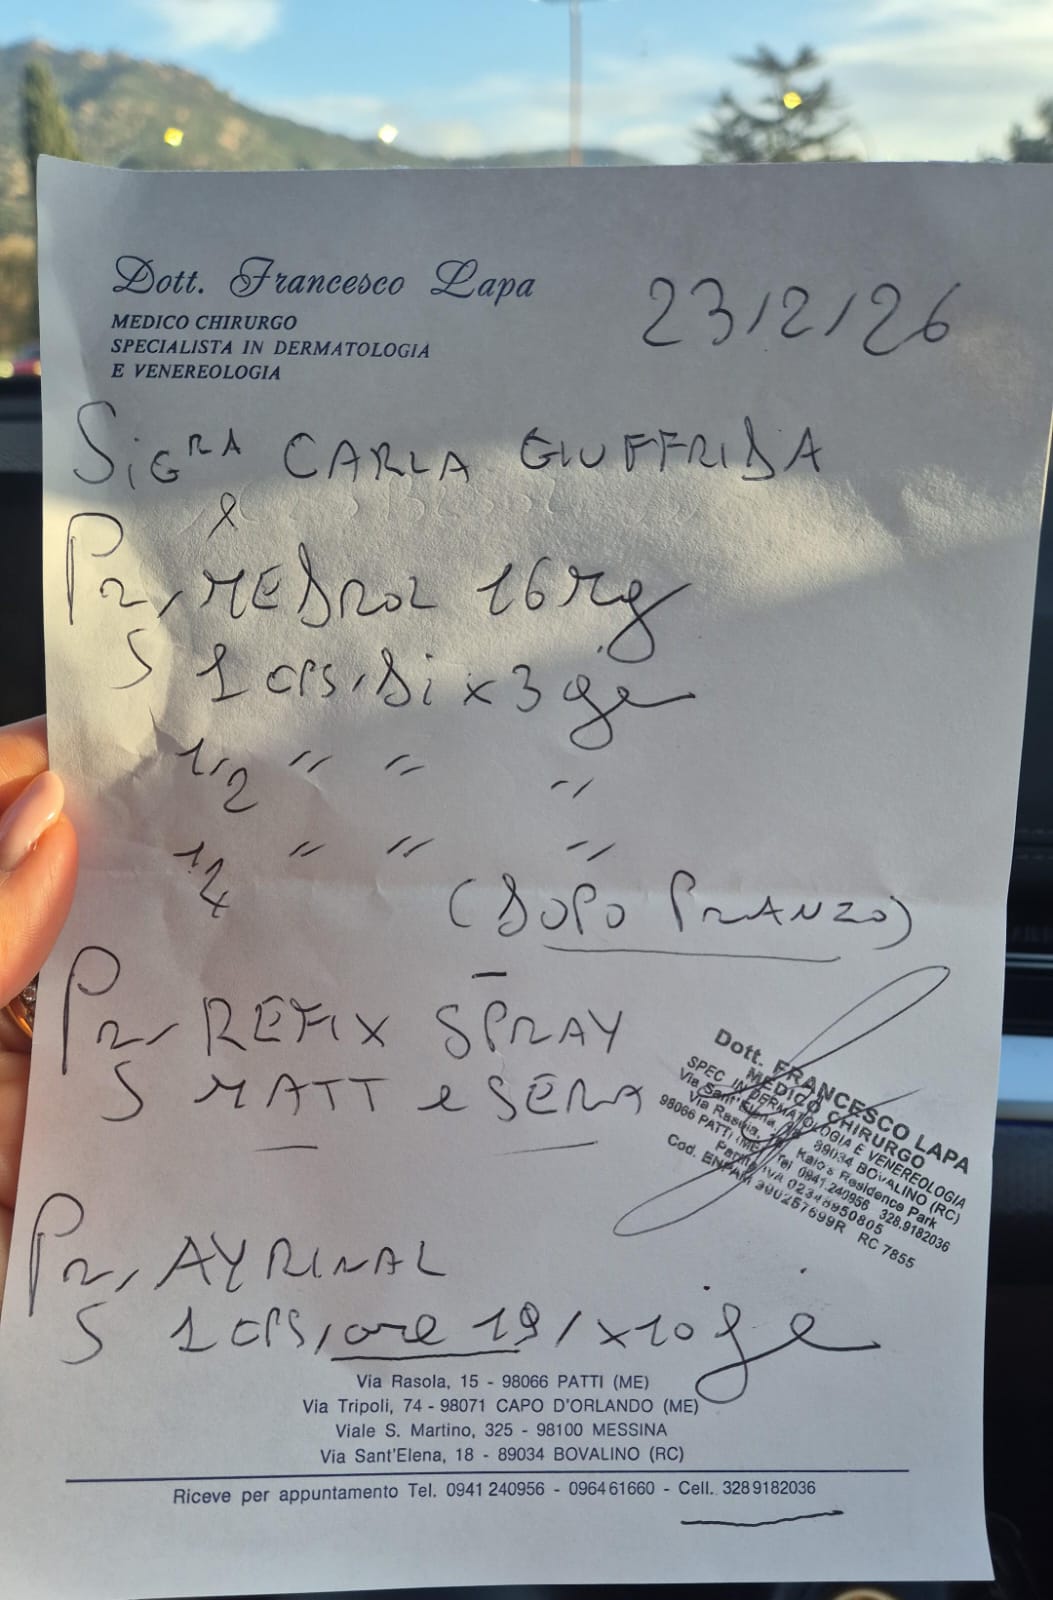 Dott. Francesco Lapa
MEDICO CHIRURGO
SPECIALISTA IN DERMATOLOGIA
E VENEREOLOGIA
23/2/26
SIGRA CARLA GIUFFRIDA
Pr, MEDROL 16 Mg
S 1 CPS, di x 3 gg
1/2 " " "
1/4 " " "
(DOPO PRANZO)
Pr, REFIX SPRAY
S MATT e SERA
Dott. FRANCESCO LAPA
MEDICO CHIRURGO
SPEC. IN DERMATOLOGIA E VENEREOLOGIA
Via Sant'Elena, 18 89034 BOVALINO (RC)
Via Rasola, 15 Kalo's Residence Park
98066 PATTI (ME) Tel 0941.240956 328.9182036
Partita IVA
Cod. ENPAM RC 7855
Pr, AYRINAL
S 1 CPS, ore 19 / x 10 gg
Via Rasola, 15 - 98066 PATTI (ME)
Via Tripoli, 74 - 98071 CAPO D'ORLANDO (ME)
Viale S. Martino, 325 - 98100 MESSINA
Via Sant'Elena, 18 - 89034 BOVALINO (RC)
Riceve per appuntamento Tel. 0941 240956 - 0964 61660 - Cell. 328 9182036